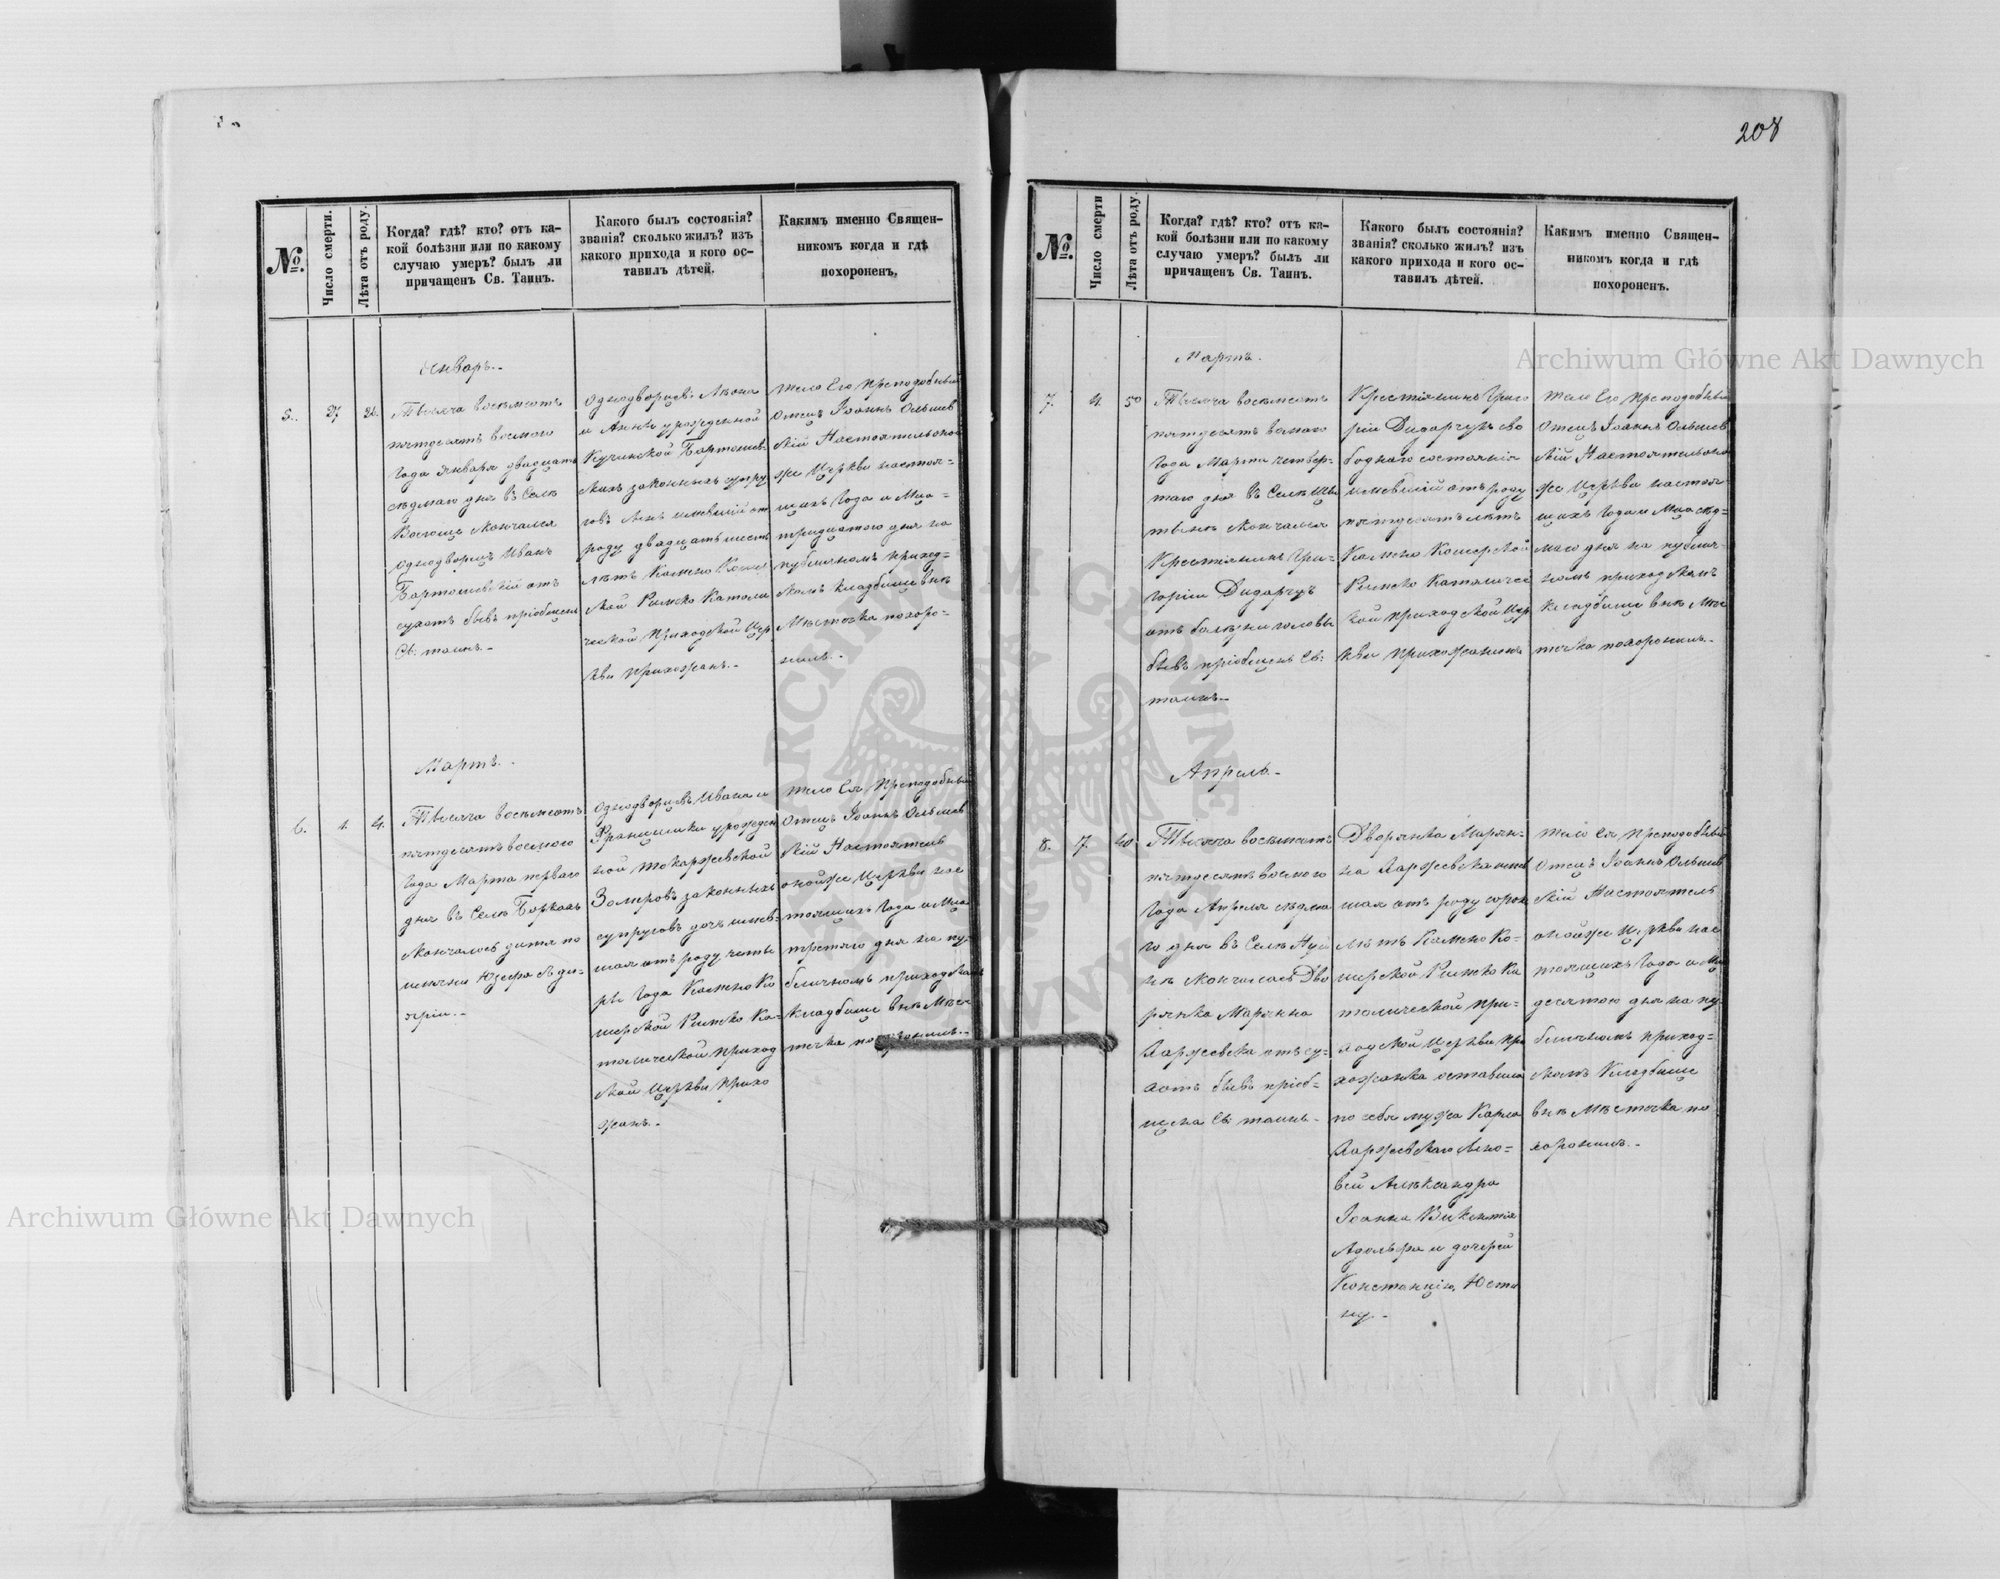 208
№.
Число смерти.
Лѣта отъ роду.
Когда? гдѣ? кто? отъ ка-
кой болѣзни или по какому
случаю умеръ? былъ ли
причащенъ Св. Таинъ.
Какого былъ состоянія?
званія? сколько жилъ? изъ
какого прихода и кого ос-
тавилъ дѣтей.
Какимъ именно Священ-
никомъ когда и гдѣ
похороненъ.
Январь.
5.
27
26.
Тысяча восемьсотъ
пятдесятъ восмого
Года Января двадцать
седмаго дня въ Селѣ
скончался
однодворецъ Иванъ
Бартошевскій отъ
сухотъ бывъ пріобщенъ
Св. таинъ.
Однодворцевъ Леона
и Анны урожденной
Кучинской Бартошев-
скихъ законныхъ супру
говъ сынъ имевшій от
роду двадцать шесть
лѣтъ
ской Римско Католи
ческой Приходской Цер
кви прихожанъ.
тело Его Преподобный
Отецъ Іоаннъ Ольшев
скій Настоятель оной
же Церкви настоя-
щихъ Года и Мца-
тридцатого дня на
публичномъ приход-
скомъ кладбище внѣ
Мѣсточка похоро-
нилъ.
Мартъ.
6.
1.
4.
Тысяча восемьсотъ
пятдесятъ восмого
Года Марта перваго
дня въ Селѣ Борках
скончалось дитя по
имени Юзефа
Однодворцевъ Ивана и
Францишки урожден
ной Токаржевской
законныхъ
супруговъ дочь имев-
шая отъ роду четы
ры Года Камено Ко
шерской Римско Ка-
толической приход
ской Церкви прихо
жанъ.
тело Ея Преподобный
Отецъ Іоаннъ Ольшев
скій Настоятель
онойже Церкви нас
тоящихъ Года и Мца
третяго дня на пу-
бличномъ приходскомъ
кладбище внѣ Мѣс
точка похоронилъ.
№.
Число смерти
Лѣта отъ роду.
Когда? гдѣ? кто? отъ ка-
кой болѣзни или по какому
случаю умеръ? былъ ли
причащенъ Св. Таинъ.
Какого былъ состоянія?
званія? сколько жилъ? изъ
какого прихода и кого ос-
тавилъ дѣтей.
Какимъ именно Священ-
никомъ когда и гдѣ
похороненъ.
Мартъ.
7.
4.
50
Тысяча восемьсотъ
пятдесятъ восмаго
Года Марта четвер-
таго дня въ Селѣ
скончался
Крестянинъ Гри-
горій Дидорчукъ
отъ болезни головы
бывъ пріобщенъ Св.
таинъ.
Крестянинъ Григо
рій Дидорчукъ сво
боднаго состоянія
имевшій отъ роду
пятдесятъ лѣтъ
Камено Кошерской
Римско Католичес
кой приходской Цер
кви прихожанинъ
тело Его Преподобный
Отецъ Іоаннъ Ольшев
скій Настоятель оной
же Церкви настоя
щихъ Года и Мца сед-
маго дня на публич-
номъ приходскомъ
кладбище внѣ Мѣс
точка похоронилъ.
Апрель.
8.
7.
40
Тысяча восемьсотъ
пятдесятъ восмого
Года Апреля седма
го дня въ Селѣ
скончалась Дво
рянка Марянна
отъ су-
хотъ бывъ пріоб-
щена Св. таинъ.
Дворянка Марян-
на
шая отъ роду сорок
лѣтъ Камено Ко-
шерской Римско Ка
толической при-
ходской Церкви при
хожанка оставила
по себя мужа Карла
сыно-
вей Александра
Іоанна Викентія
Адольфа и дочерей
Констанцію, Юсти
ну.
тело Ея Преподобный
Отецъ Іоаннъ Ольшев
скій Настоятель
онойже Церкви нас
тоящихъ Года и Мца
десятого дня на пу-
бличномъ приход-
скомъ Кладбище
внѣ Мѣсточка по
хоронилъ.
Archiwum Główne Akt Dawnych
Archiwum Główne Akt Dawnych